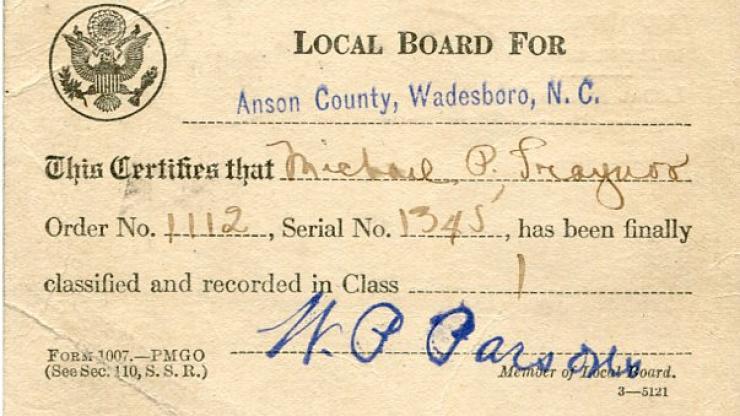 LOCAL BOARD FOR
Anson County, Wadesboro, N. C.
This Certifies that Michael P. Traynor
Order No. 1112, Serial No. 1345, has been finally
classified and recorded in Class 1
W. P. Parsons
FORM 1007.—PMGO
(See Sec. 110, S. S. R.)
Member of Local Board.
3—5121